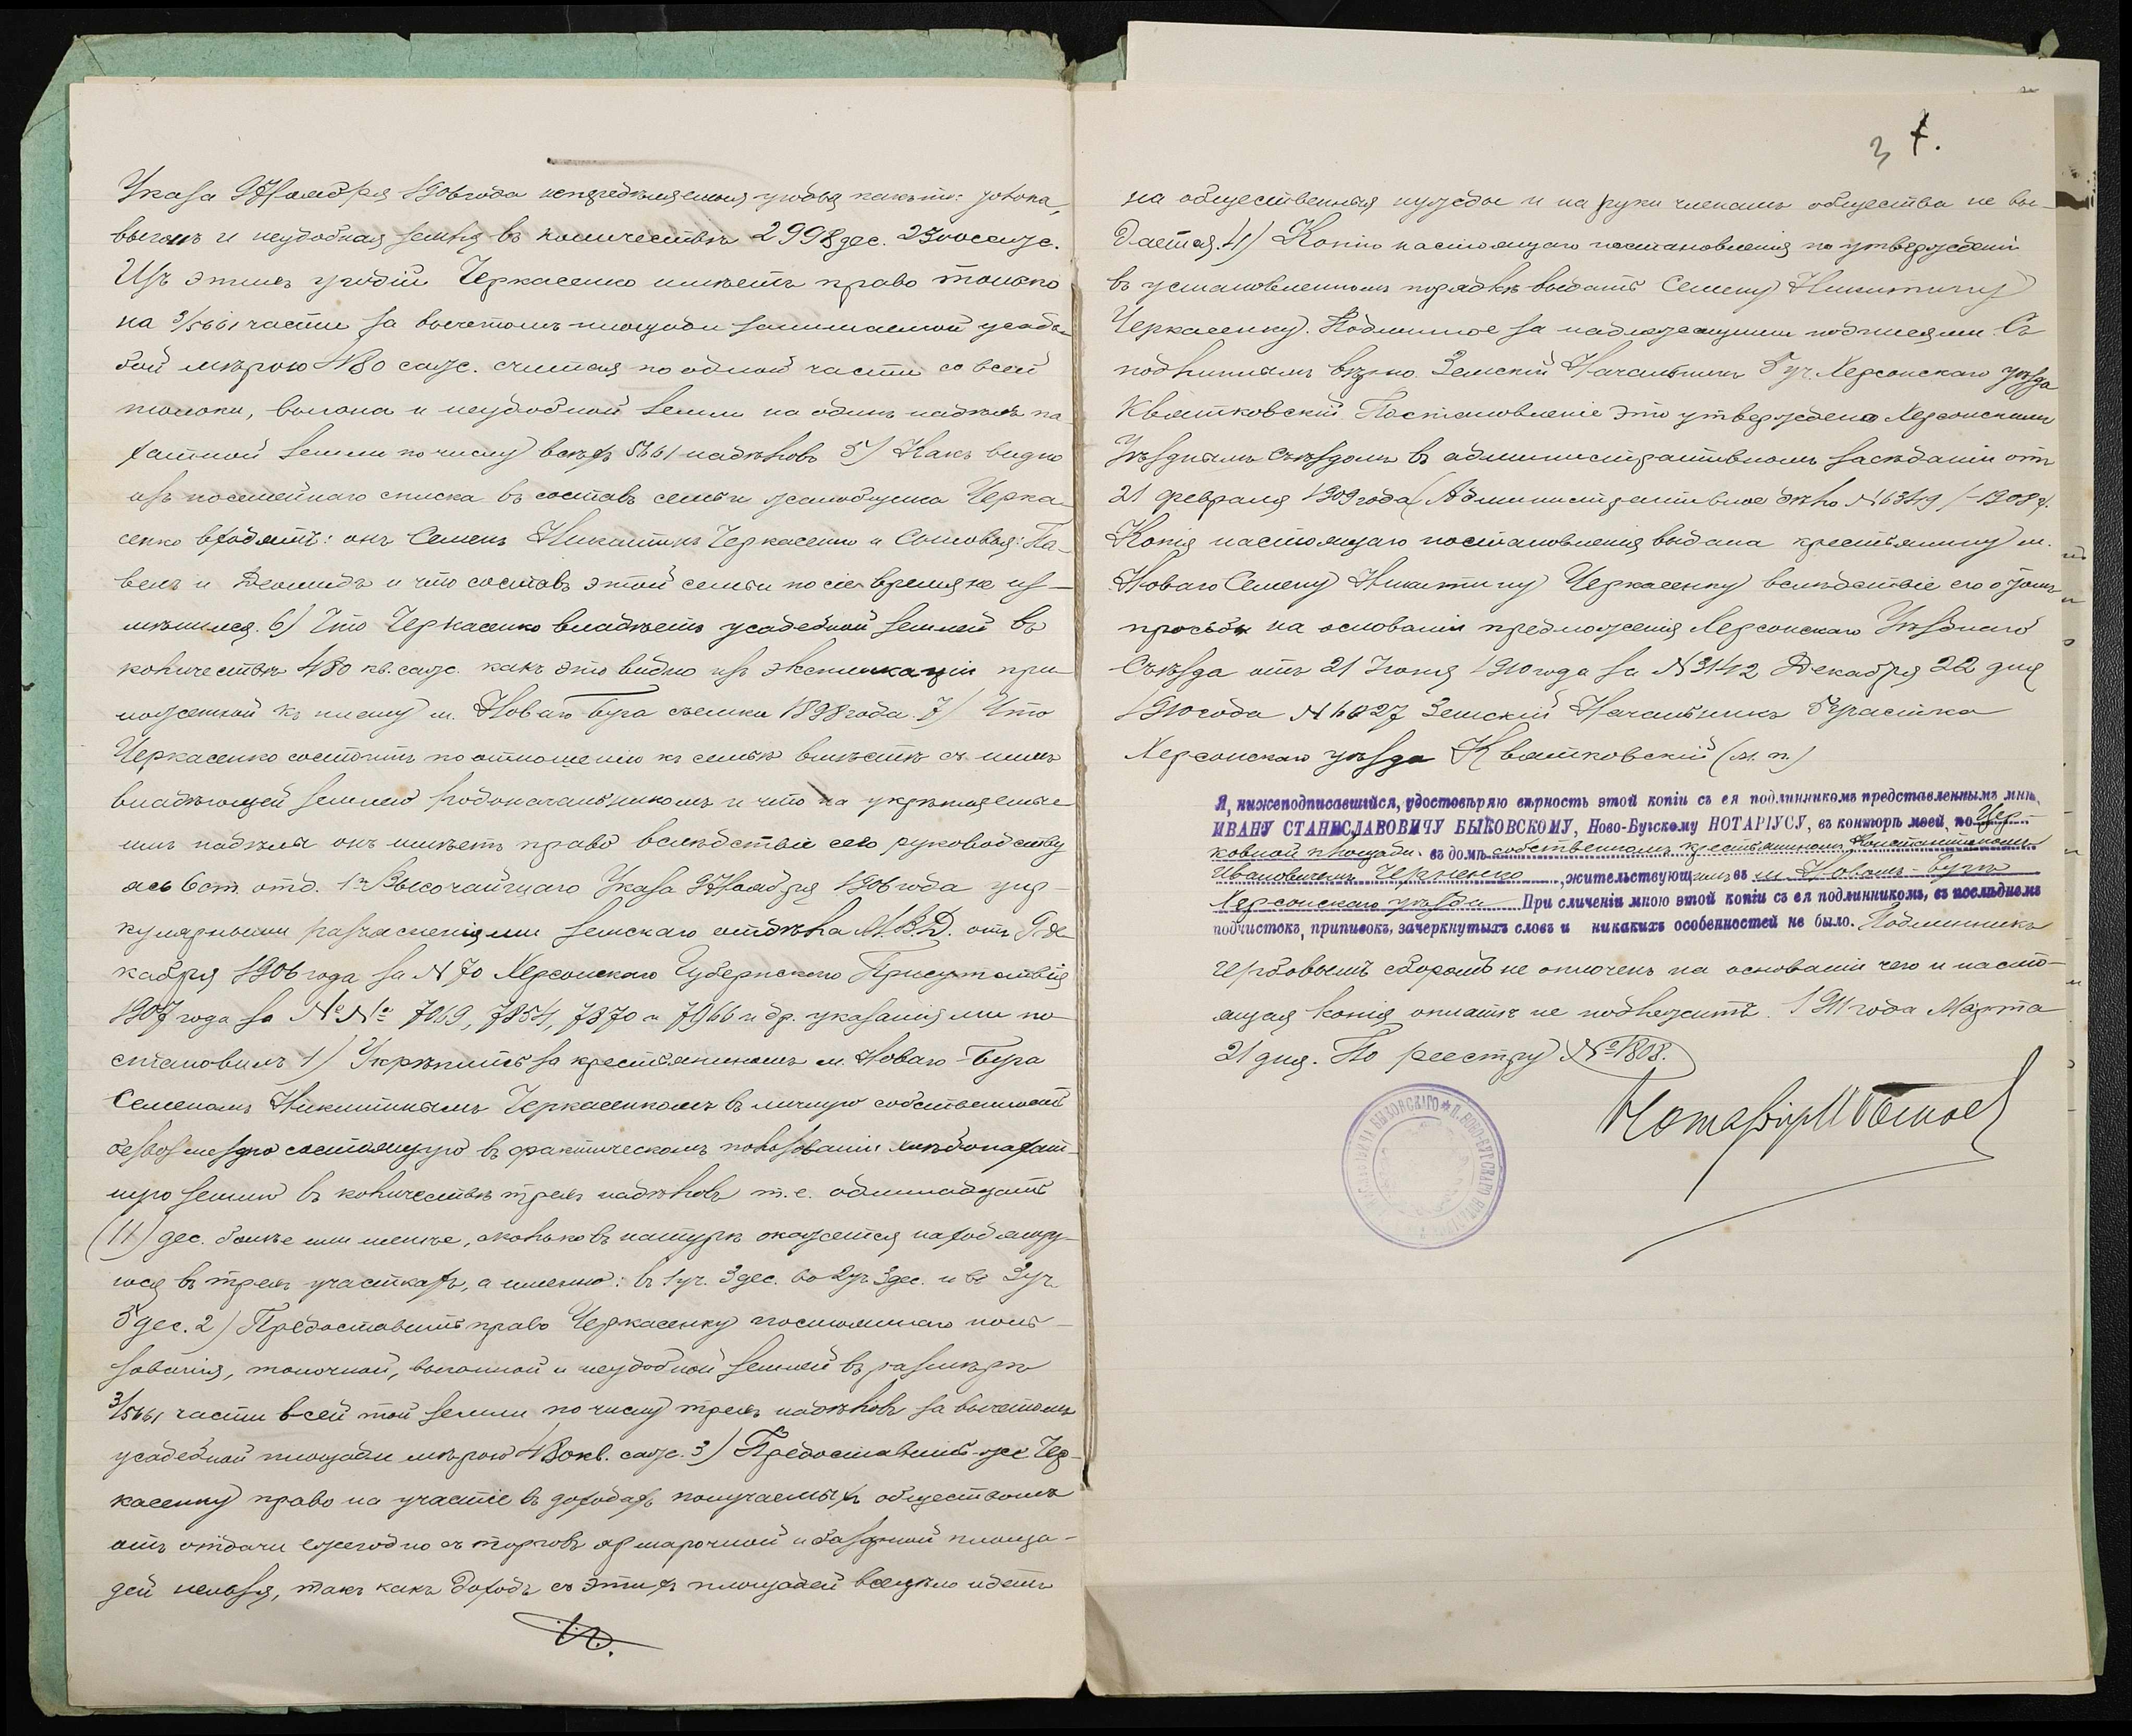 Указа 9 Ноября 1906 года неопредѣляемыя угодья какъ то: толока,
выгонъ и неудобная земля въ количествѣ 2998 дес. 2300 саж.
Изъ этихъ угодій Черкасенко имѣетъ право только
на 3/5661 части за вычетомъ площади занимаемой усадь-
бой мѣрою 480 саж. считая по одной части со всей
толоки, выгона и неудобной земли на одинъ надѣлъ па-
хатной земли по числу всѣхъ 5661 надѣловъ 5) Какъ видно
изъ посемейнаго списка въ составъ семьи домохозяина Черка-
сенко входятъ: онъ Семенъ Никитинъ Черкасенко и Сыновья: Па-
велъ и Деомидъ и что составъ этой семьи по сіе время не из-
мѣнился. 6) Что Черкасенко владѣетъ усадебной землей въ
количествѣ 480 кв. саж. какъ это видно изъ экспликаціи при-
ложенной къ плану м. Новаго Буга съемки 1898 года. 7) Что
Черкасенко состоитъ по отношенію къ семьѣ вмѣстѣ съ нимъ
владѣющей землею родоначальникомъ и что на укрѣпляемые
имъ надѣлы онъ имѣетъ право вслѣдствіе сего руководству
ясь 6 ст. отд. 1 Высочайшаго Указа 9 Ноября 1906 года цир-
кулярными разъясненіями земскаго отдѣла М.В.Д. отъ 9 де-
кабря 1906 года за № 70 Херсонскаго Губернскаго Присутствія
1907 года за №№ 7069, 7854, 7870 и 7966 и др. указаніями по-
становилъ 1) Укрѣпить за крестьяниномъ м. Новаго-Буга
Семеномъ Никитинымъ Черкасенкомъ въ личную собственность
безвозмездно состоящую въ фактическомъ пользованіи хлѣбопахат-
ную землю въ количествѣ трехъ надѣловъ т.е. одиннадцать
(11) дес. болѣе или менѣе, сколько въ натурѣ окажется находящу-
юся въ трехъ участкахъ, а именно: въ 1 уч. 3 дес. во 2 уч. 3 дес. и въ 3 уч.
5 дес. 2) Предоставить право Черкасенку постояннаго поль-
зованія, толочной, выгонной и неудобной землей въ размѣрѣ
3/5661 части всей той земли по числу трехъ надѣловъ за вычетомъ
усадебной площади мѣрою 480 кв. саж. 3) Предоставить-же Чер-
касенку право на участіе въ доходахъ получаемыхъ обществомъ
отъ отдачи ежегодно съ торговъ ярмарочной и базарной площа-
дей нельзя, такъ какъ доходъ съ этихъ площадей всецѣло идетъ
3 7.
на общественныя нужды и на руки членамъ общества не вы-
дается. 4) Копію настоящаго постановленія по утвержденіи
въ установленномъ порядкѣ выдать Семену Никитину
Черкасенку. Подлинное за надлежащими подписями. Съ
подлиннымъ вѣрно. Земскій Начальникъ 5 уч. Херсонскаго уѣзда
Квятковскій. Постановленіе это утверждено Херсонскимъ
Уѣзднымъ Съѣздомъ въ административномъ засѣданіи отъ
21 февраля 1909 года (Административное дѣло № 6349/-1908 г.
Копія настоящаго постановленія выдана крестьянину м.
Новаго Семену Никитину Черкасенку вслѣдствіе его о томъ
просьбы на основаніи предложенія Херсонскаго Уѣзднаго
Съѣзда отъ 21 Іюня 1910 года за № 3142 Декабря 22 дня
1910 года № 6027 Земскій Начальникъ 5 участка
Херсонскаго уѣзда Квятковскій (м. п.)
Я, нижеподписавшійся, удостовѣряю вѣрность этой копіи съ ея подлинникомъ представленнымъ мнѣ,
ИВАНУ СТАНИСЛАВОВИЧУ БЫКОВСКОМУ, Ново-Бугскому НОТАРІУСУ, въ конторѣ моей, по Цер-
ковной площади въ домѣ собственномъ крестьяниномъ Константиномъ
Ивановичемъ Черненко, жительствующимъ въ м. Новомъ-Бугѣ
Херсонскаго уѣзда При сличеніи мною этой копіи съ ея подлинникомъ, въ послѣднемъ
подчистокъ, приписокъ, зачеркнутыхъ словъ и никакихъ особенностей не было. Подлинникъ
гербовымъ сборомъ не оплоченъ на основаніи чего и насто-
ящая копія оплатѣ не подлежитъ. 1911 года Марта
21 дня. По реестру № 1808.
Нотаріус